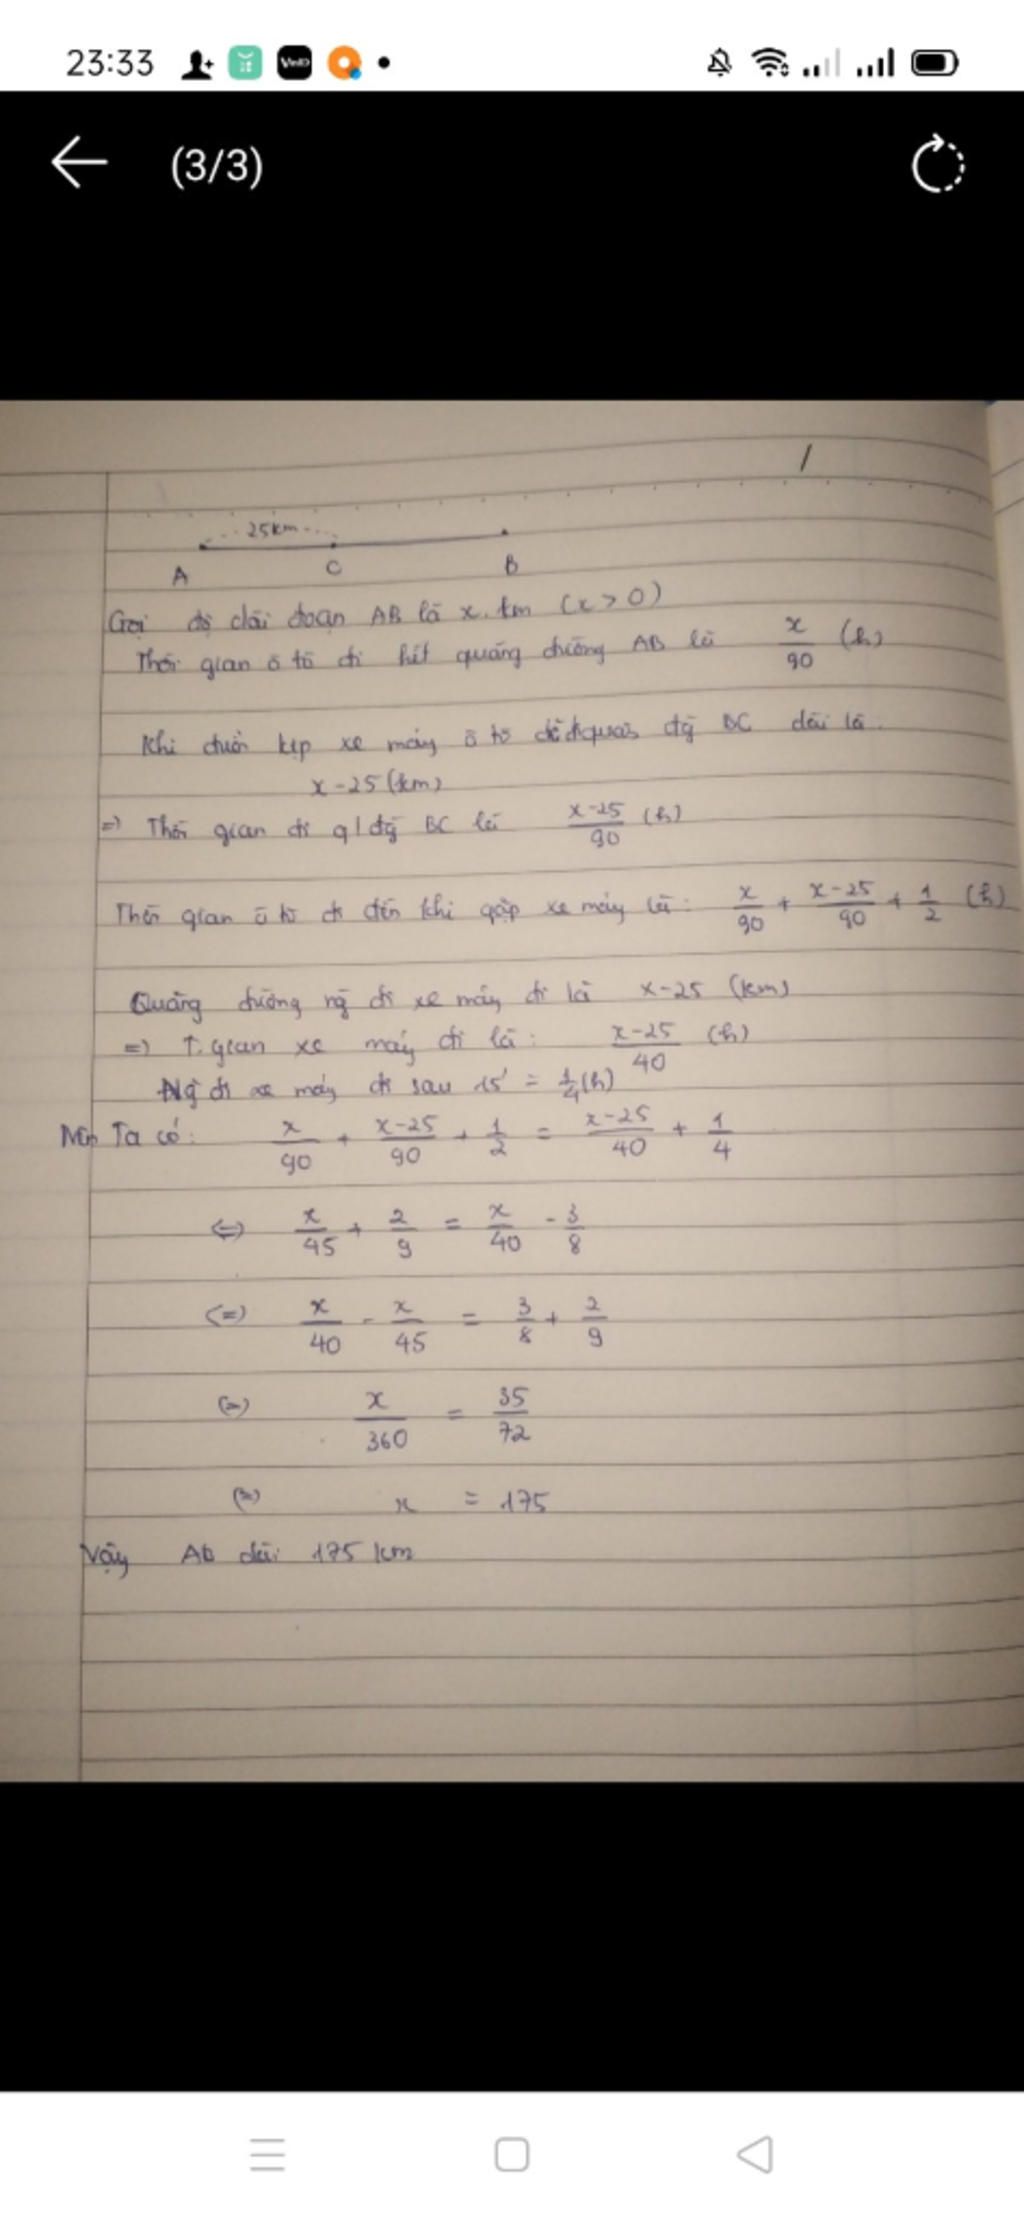 23:33
VinID
(3/3)
25km
A C B
Gọi độ dài đoạn AB là x. km (x > 0)
Thời gian ô tô đi hết quãng đường AB là x/90 (h)
Khi đuổi kịp xe máy ô tô đi đ BC dài là:
x - 25 (km)
=> Thời gian đi q đg BC là x-25/90 (h)
Thời gian ô tô đi đến khi gặp xe máy là: x/90 + x-25/90 + 1/2 (h)
Quãng đường ng đi xe máy đi là x-25 (km)
=> T.gian xe máy đi là: x-25/40 (h)
Ng đi xe máy đi sau 15' = 1/4 (h)
Nên Ta có: x/90 + x-25/90 + 1/2 = x-25/40 + 1/4
<=> x/45 + 2/9 = x/40 - 3/8
<=> x/40 - x/45 = 3/8 + 2/9
<=> x/360 = 35/72
<=> x = 175
Vậy AB dài 175 km